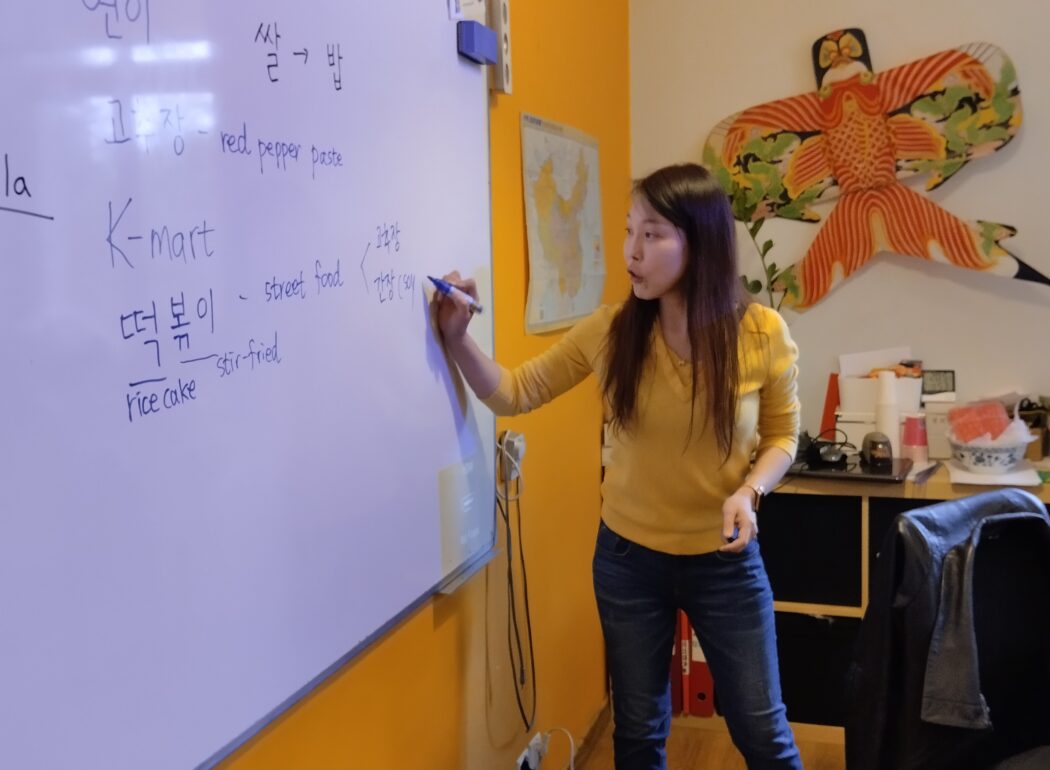 쌀 → 밥
고추장 - red pepper paste
la
K-mart
떡볶이 - street food
고추장
간장 (soy
stir-fried
rice cake